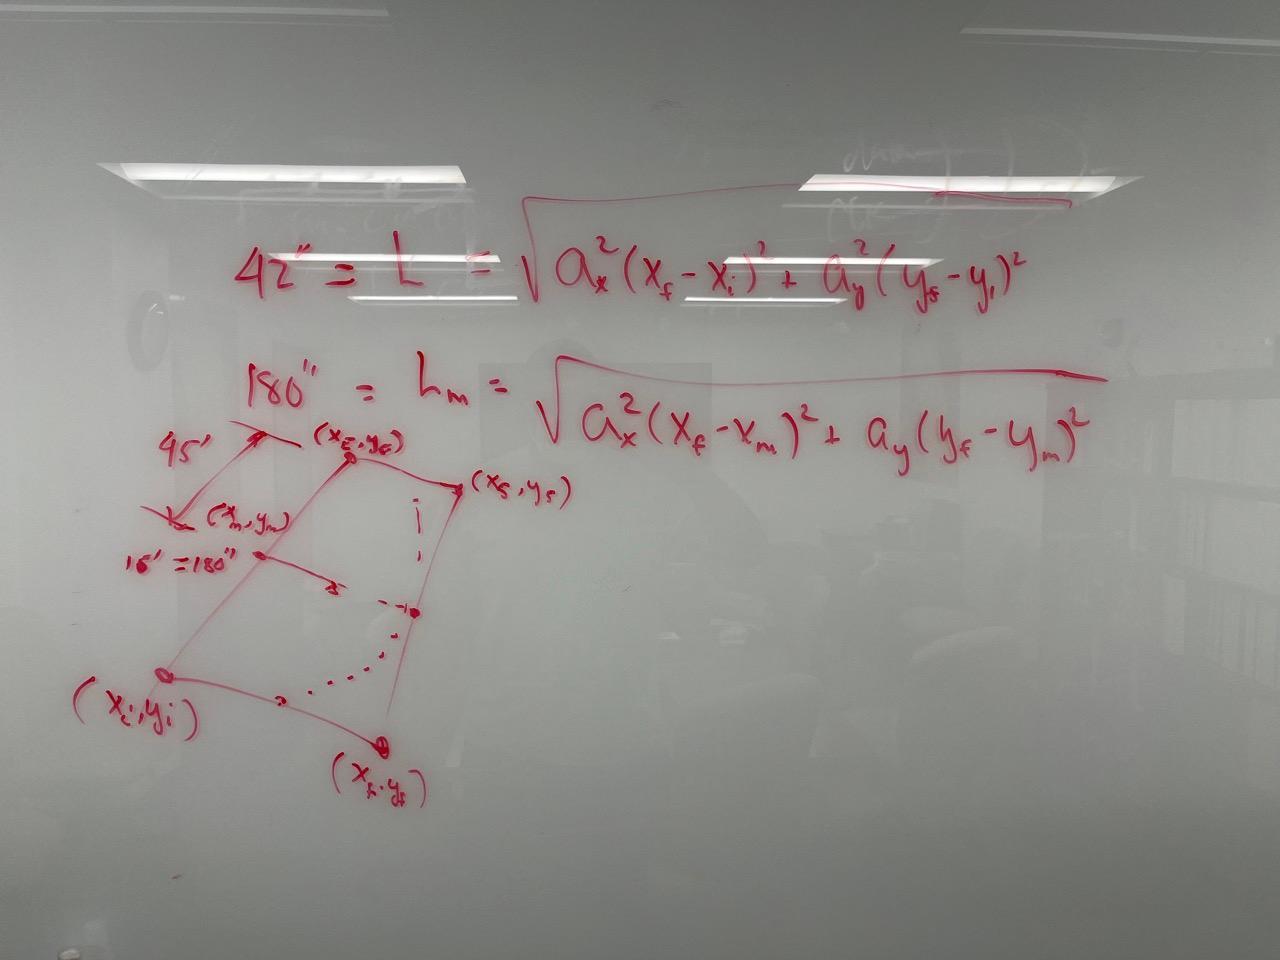 42" = L = √(a_x²(x_f - x_i)² + a_y²(y_f - y_i)²)
180" = L_m = √(a_x²(x_f - x_m)² + a_y(y_f - y_m)²)
45' (x_f, y_f)
(x_s, y_s)
(x_m, y_m)
15' = 180"
(x_i, y_i)
(x_f, y_f)